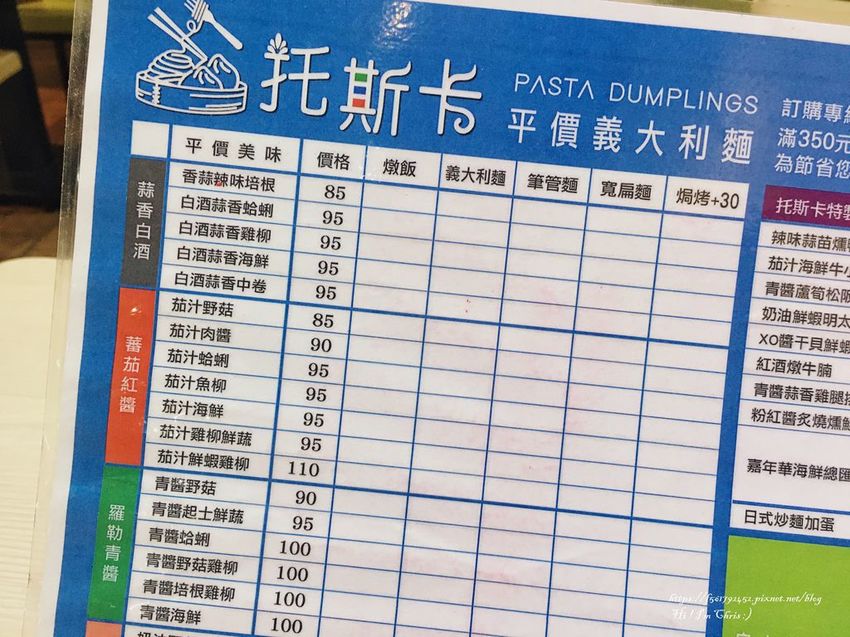 托斯卡
PASTA DUMPLINGS
平價義大利麵
訂購專線
滿350元
為節省您
平價美味 價格 燉飯 義大利麵 筆管麵 寬扁麵 焗烤+30
蒜香白酒
香蒜辣味培根 85
白酒蒜香蛤蜊 95
白酒蒜香雞柳 95
白酒蒜香海鮮 95
白酒蒜香中卷 95
蕃茄紅醬
茄汁野菇 85
茄汁肉醬 90
茄汁蛤蜊 95
茄汁魚柳 95
茄汁海鮮 95
茄汁雞柳鮮蔬 95
茄汁鮮蝦雞柳 110
羅勒青醬
青醬野菇 90
青醬起士鮮蔬 95
青醬蛤蜊 100
青醬野菇雞柳 100
青醬培根雞柳 100
青醬海鮮 100
托斯卡特製
辣味蒜苗燻
茄汁海鮮牛小
青醬蘆筍松阪
奶油鮮蝦明太
XO醬干貝鮮蝦
紅酒燉牛腩
青醬蒜香雞腿
粉紅醬炙燒燻
嘉年華海鮮總匯
日式炒麵加蛋
https://f561792452.pixnet.net/blog
Hi ! I'm Chris :)